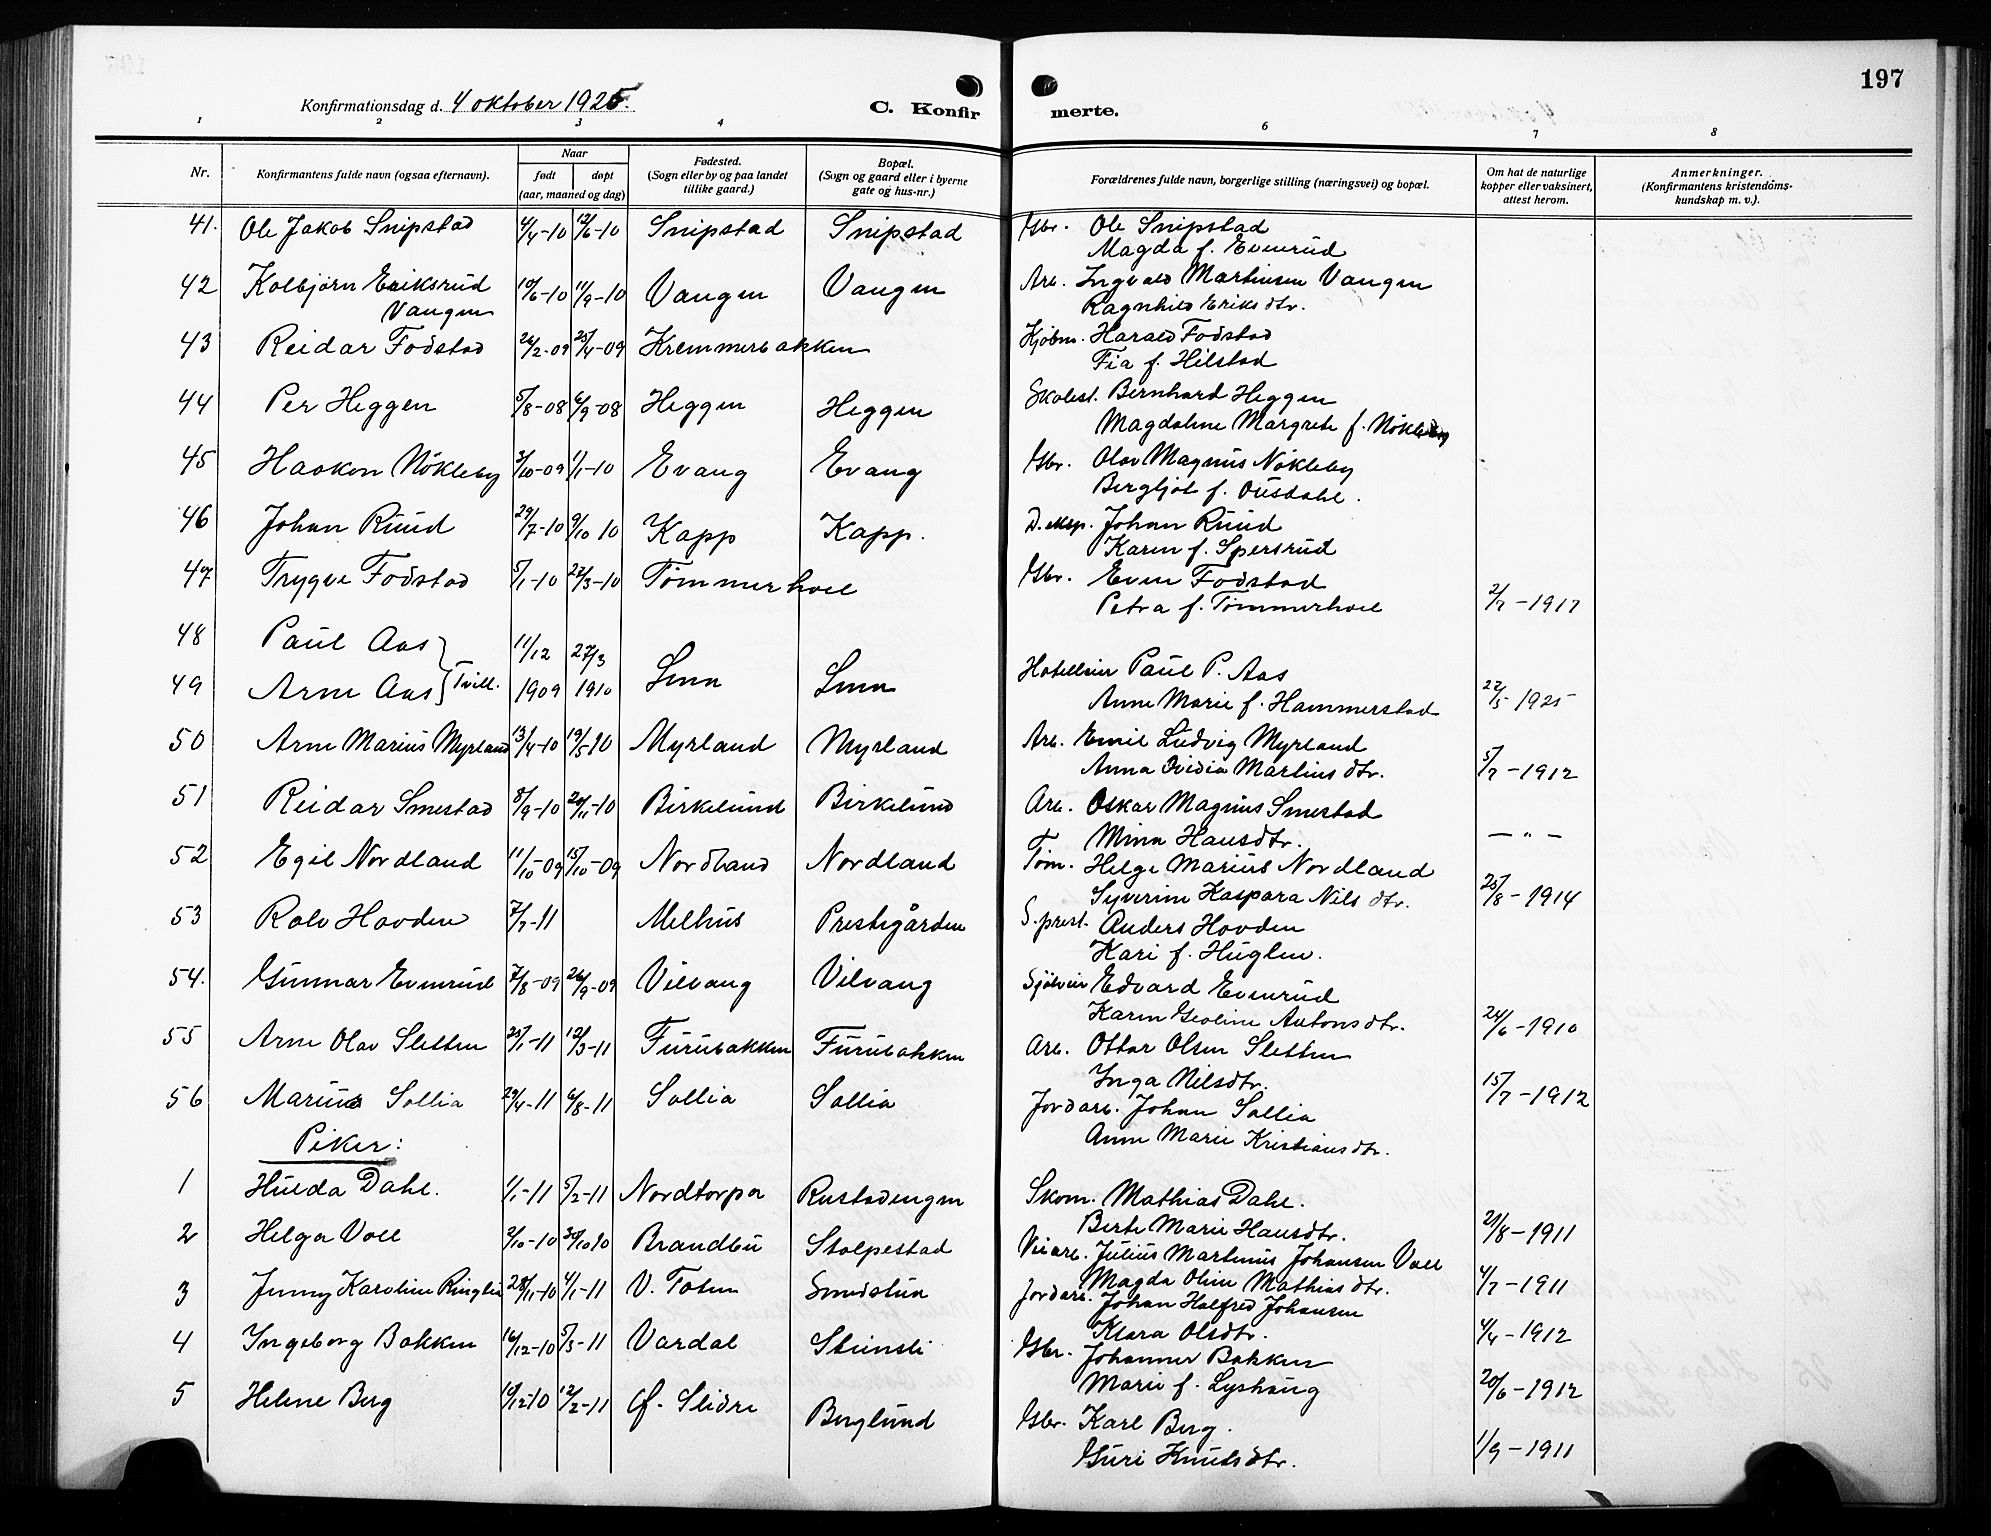 197
Konfirmationsdag d. 4 oktober 1925.
C. Konfir
merte.
1 2 3 4 5 6 7 8
Nr.
Konfirmantens fulde navn (ogsaa efternavn).
Naar
født døpt
(aar, maaned og dag)
Fødested.
(Sogn eller by og paa landet
tillike gaard.)
Bopæl.
(Sogn og gaard eller i byerne
gate og hus-nr.)
Forældrenes fulde navn, borgerlige stilling (næringsvei) og bopæl.
Om hat de naturlige
kopper eller vaksinert,
attest herom.
Anmerkninger.
(Konfirmantens kristendoms-
kundskap m. v.).
41. Ole Jakob Snipstad 4/4-10 12/6-10 Snipstad Snipstad Gbr. Ole Snipstad
Magda f. Evenrud
42 Kolbjørn Eriksrud 10/6-10 11/9-10 Vangen Vangen Arb. Ingvald Martinsen Vangen
Vangen Ragnhild Eriksdtr.
43 Reidar Fodstad 26/2-09 25/4-09 Kremmerbakken Kjøbm. Harald Fodstad
Fia f. Hilstad
44 Per Heggen 5/8-08 6/9-08 Heggen Heggen Skolest. Bernhard Heggen
Magdalene Margrete f. Nökleby
45 Haakon Nökleby 3/10-09 1/1-10 Evang Evang Gbr. Olav Magnus Nökleby
Bergljot f. Ousdahl.
46 Johan Ruud 29/7-10 9/10 10 Kapp Kapp. D. Johan Ruud
Karen f. Spersrud
47 Trygve Fodstad 5/1-10 27/3-10 Tömmerhoel Gbr. Even Fodstad
Petra f. Tömmerhoel 2/7-1917
48 Paul Aas 11/12 27/3
49 Arne Aas Tvill. 1909 1910 Lena Lena Hotelleier Paul P. Aas
Anne Marie f. Hammerstad 27/5 1925
50 Arne Marius Myrland 13/4-10 19/5 10 Myrland Myrland Arb. Emil Ludvig Myrland
Anna Ovidia Martinsdtr. 5/7-1912
51 Reidar Smestad 8/9-10 20/11-10 Birkelund Birkelund Arb. Oskar Magnus Smestad
Mina Hansdtr. — " —
52 Egil Nordland 11/10-09 15/10-09 Nordland Nordland Töm. Helge Marius Nordland
Syverine Kaspara Nilsdtr. 25/8-1914
53 Rolv Hovden 7/7-11 Melhus Prestegården S. prest. Anders Hovden
Kari f. Huglen.
54. Gunnar Evenrud 7/8-09 26/9-09 Vilvang Vilvang Sjöleier Edvard Evenrud
Karen Geoline Antonsdtr. 24/6-1910
55 Arne Olav Sletten 25/1-11 12/3-11 Furubakken Furubakken Arb. Ottar Olsen Sletten
Inga Nilsdtr. 15/7-1912
56 Marius Sollia 29/4-11 6/8-11 Sollia Sollia Jordarb. Johan Sollia
Anne Marie Kristiansdtr.
Piker:
1 Hulda Dahl. 1/1-11 5/2-11 Nordtorpa Rustadengen Skom. Mathias Dahl.
Berte Marie Hansdtr. 21/8-1911
2 Helga Voll 2/10-10 30/10 10 Brandbu Stolpestad Veiarb. Julius Martinus Johansen Voll
Magda Oline Mathiasdtr. 4/7-1911
3 Jenny Karoline Ringlia 28/11-10 4/1-11 V. Toten Smedstua Jordarb. Johan Halfred Johansen
Klara Olsdtr. 4/4-1912
4 Ingeborg Bakken 16/12-10 5/3-11 Vardal Steinsli Gbr. Johannes Bakken
Marie f. Lyshaug 20/6-1912
5 Helene Berg 10/12 10 12/2-11 Ø. Slidre Berglund Gbr. Karl Berg.
Guri Knutsdtr. 1/9-1911